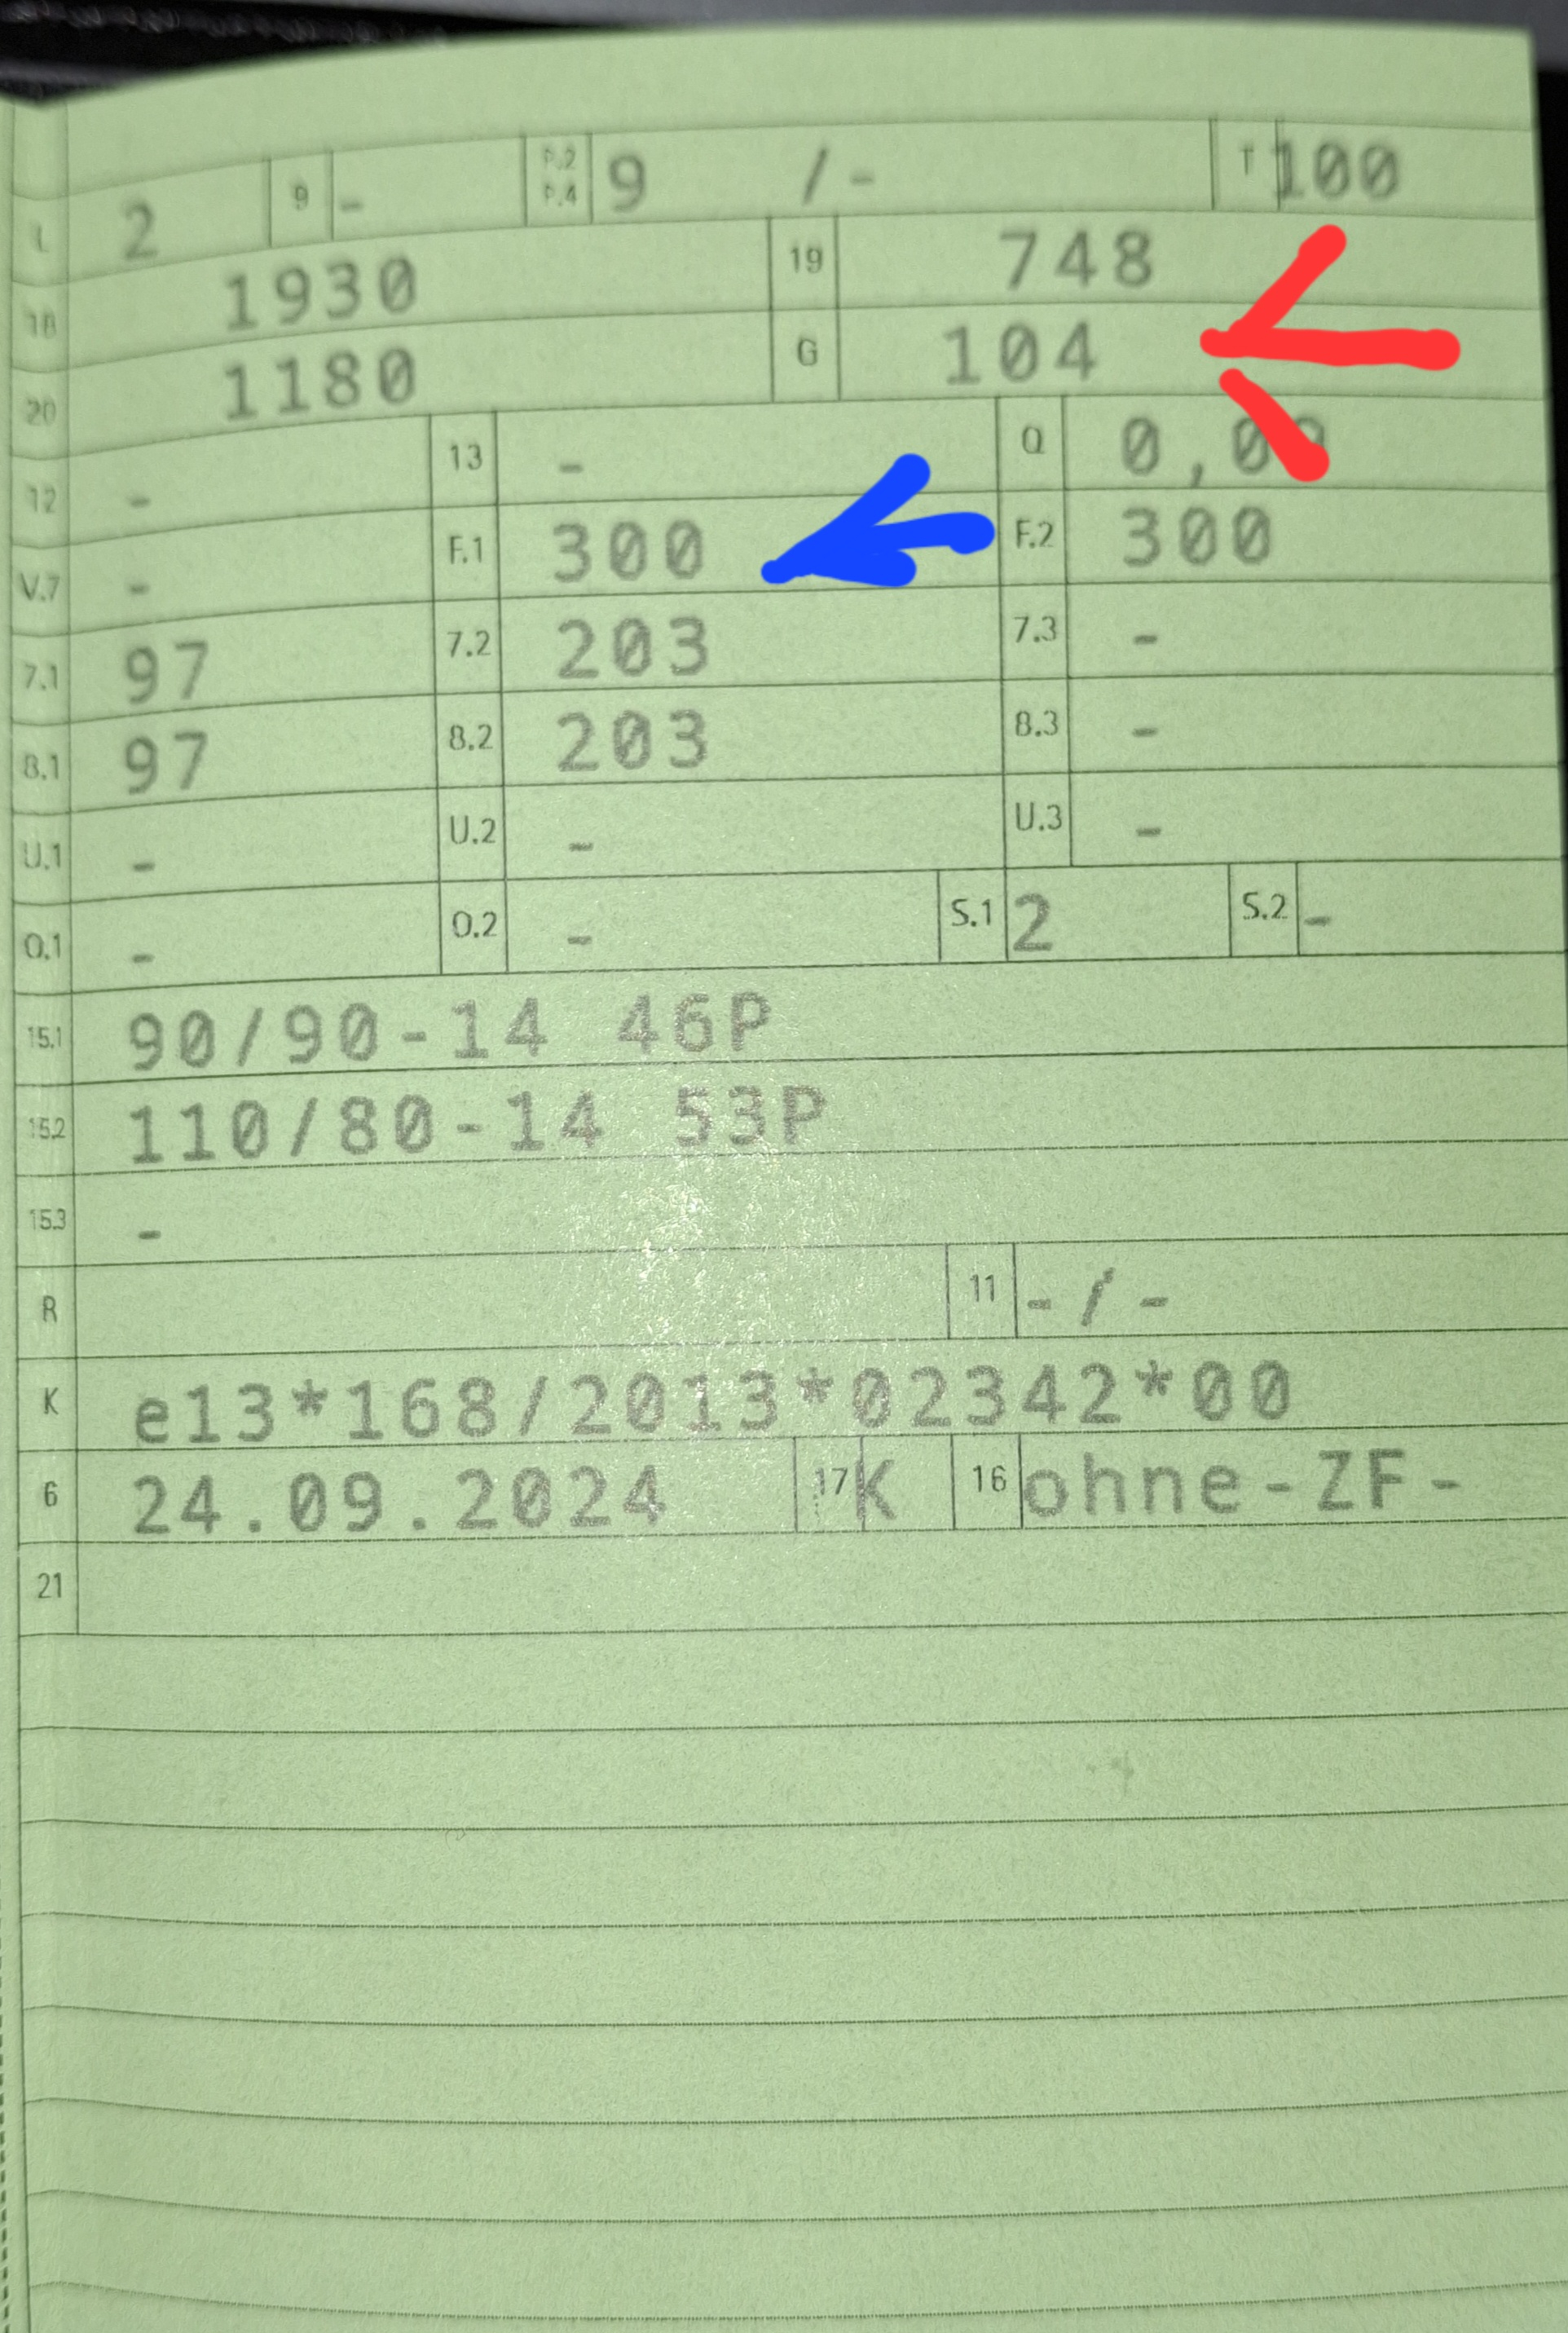 L 2 9 - P.2 P.4 9 /- T 100
18 1930 19 748
20 1180 G 104
12 - 13 - Q 0,0
V.7 - F.1 300 F.2 300
7.1 97 7.2 203 7.3 -
8.1 97 8.2 203 8.3 -
U.1 - U.2 - U.3 -
O.1 - O.2 - S.1 2 S.2 -
15.1 90/90-14 46P
15.2 110/80-14 53P
15.3 -
R 11 -/-
K e13*168/2013*02342*00
6 24.09.2024 17 K 16 ohne-ZF-
21